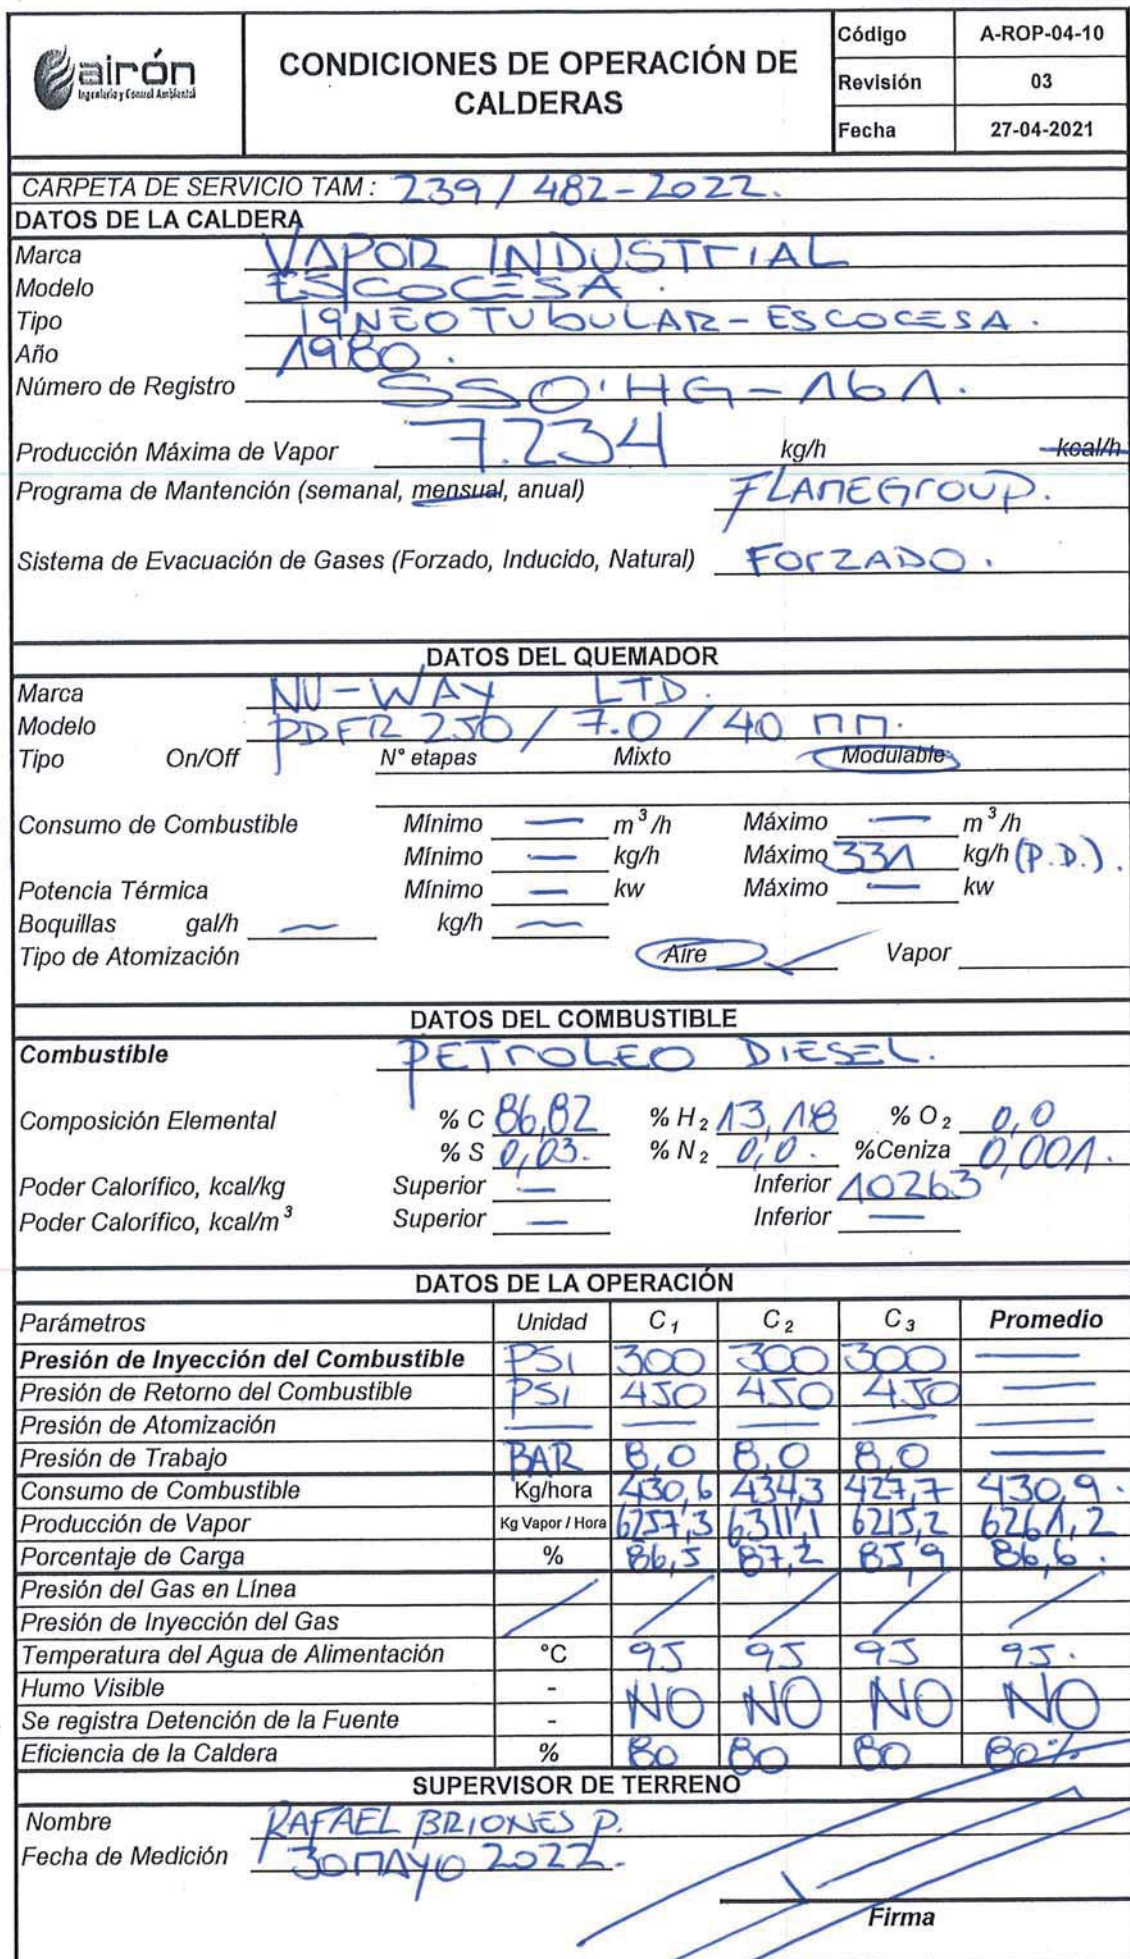 airón
Ingeniería y Control Ambiental
CONDICIONES DE OPERACIÓN DE
CALDERAS
Código A-ROP-04-10
Revisión 03
Fecha 27-04-2021
CARPETA DE SERVICIO TAM : 239 / 482-2022.
DATOS DE LA CALDERA
Marca VAPOR INDUSTRIAL
Modelo ESCOCESA.
Tipo IGNEOTUBULAR-ESCOCESA.
Año 1980.
Número de Registro SSO'HG-161.
Producción Máxima de Vapor 7.234 kg/h kcal/h
Programa de Mantención (semanal, mensual, anual) FLAMEGROUP.
Sistema de Evacuación de Gases (Forzado, Inducido, Natural) FORZADO.
DATOS DEL QUEMADOR
Marca NU-WAY LTD.
Modelo PDFR 250 / 7.0 / 40 MM.
Tipo On/Off N° etapas Mixto Modulable
Consumo de Combustible Mínimo — m³/h Máximo — m³/h
Mínimo — kg/h Máximo 331 kg/h (P.D.).
Potencia Térmica Mínimo — kw Máximo — kw
Boquillas gal/h — kg/h —
Tipo de Atomización Aire ✓ Vapor
DATOS DEL COMBUSTIBLE
Combustible PETROLEO DIESEL.
Composición Elemental % C 86,82 % H₂ 13,18 % O₂ 0,0
% S 0,03. % N₂ 0,0. %Ceniza 0,001.
Poder Calorífico, kcal/kg Superior — Inferior 10263
Poder Calorífico, kcal/m³ Superior — Inferior —
DATOS DE LA OPERACIÓN
Parámetros Unidad C₁ C₂ C₃ Promedio
Presión de Inyección del Combustible PSI 300 300 300 —
Presión de Retorno del Combustible PSI 450 450 450 —
Presión de Atomización — — — — —
Presión de Trabajo BAR 8,0 8,0 8,0 —
Consumo de Combustible Kg/hora 430,6 434,3 427,7 430,9.
Producción de Vapor Kg Vapor / Hora 6257,3 6311,1 6215,2 6261,2
Porcentaje de Carga % 86,5 87,2 85,9 86,6.
Presión del Gas en Línea
Presión de Inyección del Gas / / / / /
Temperatura del Agua de Alimentación °C 95 95 95 95.
Humo Visible -
Se registra Detención de la Fuente - NO NO NO NO
Eficiencia de la Caldera % 80 80 80 80%
SUPERVISOR DE TERRENO
Nombre RAFAEL BRIONES P.
Fecha de Medición 30 MAYO 2022.
Firma